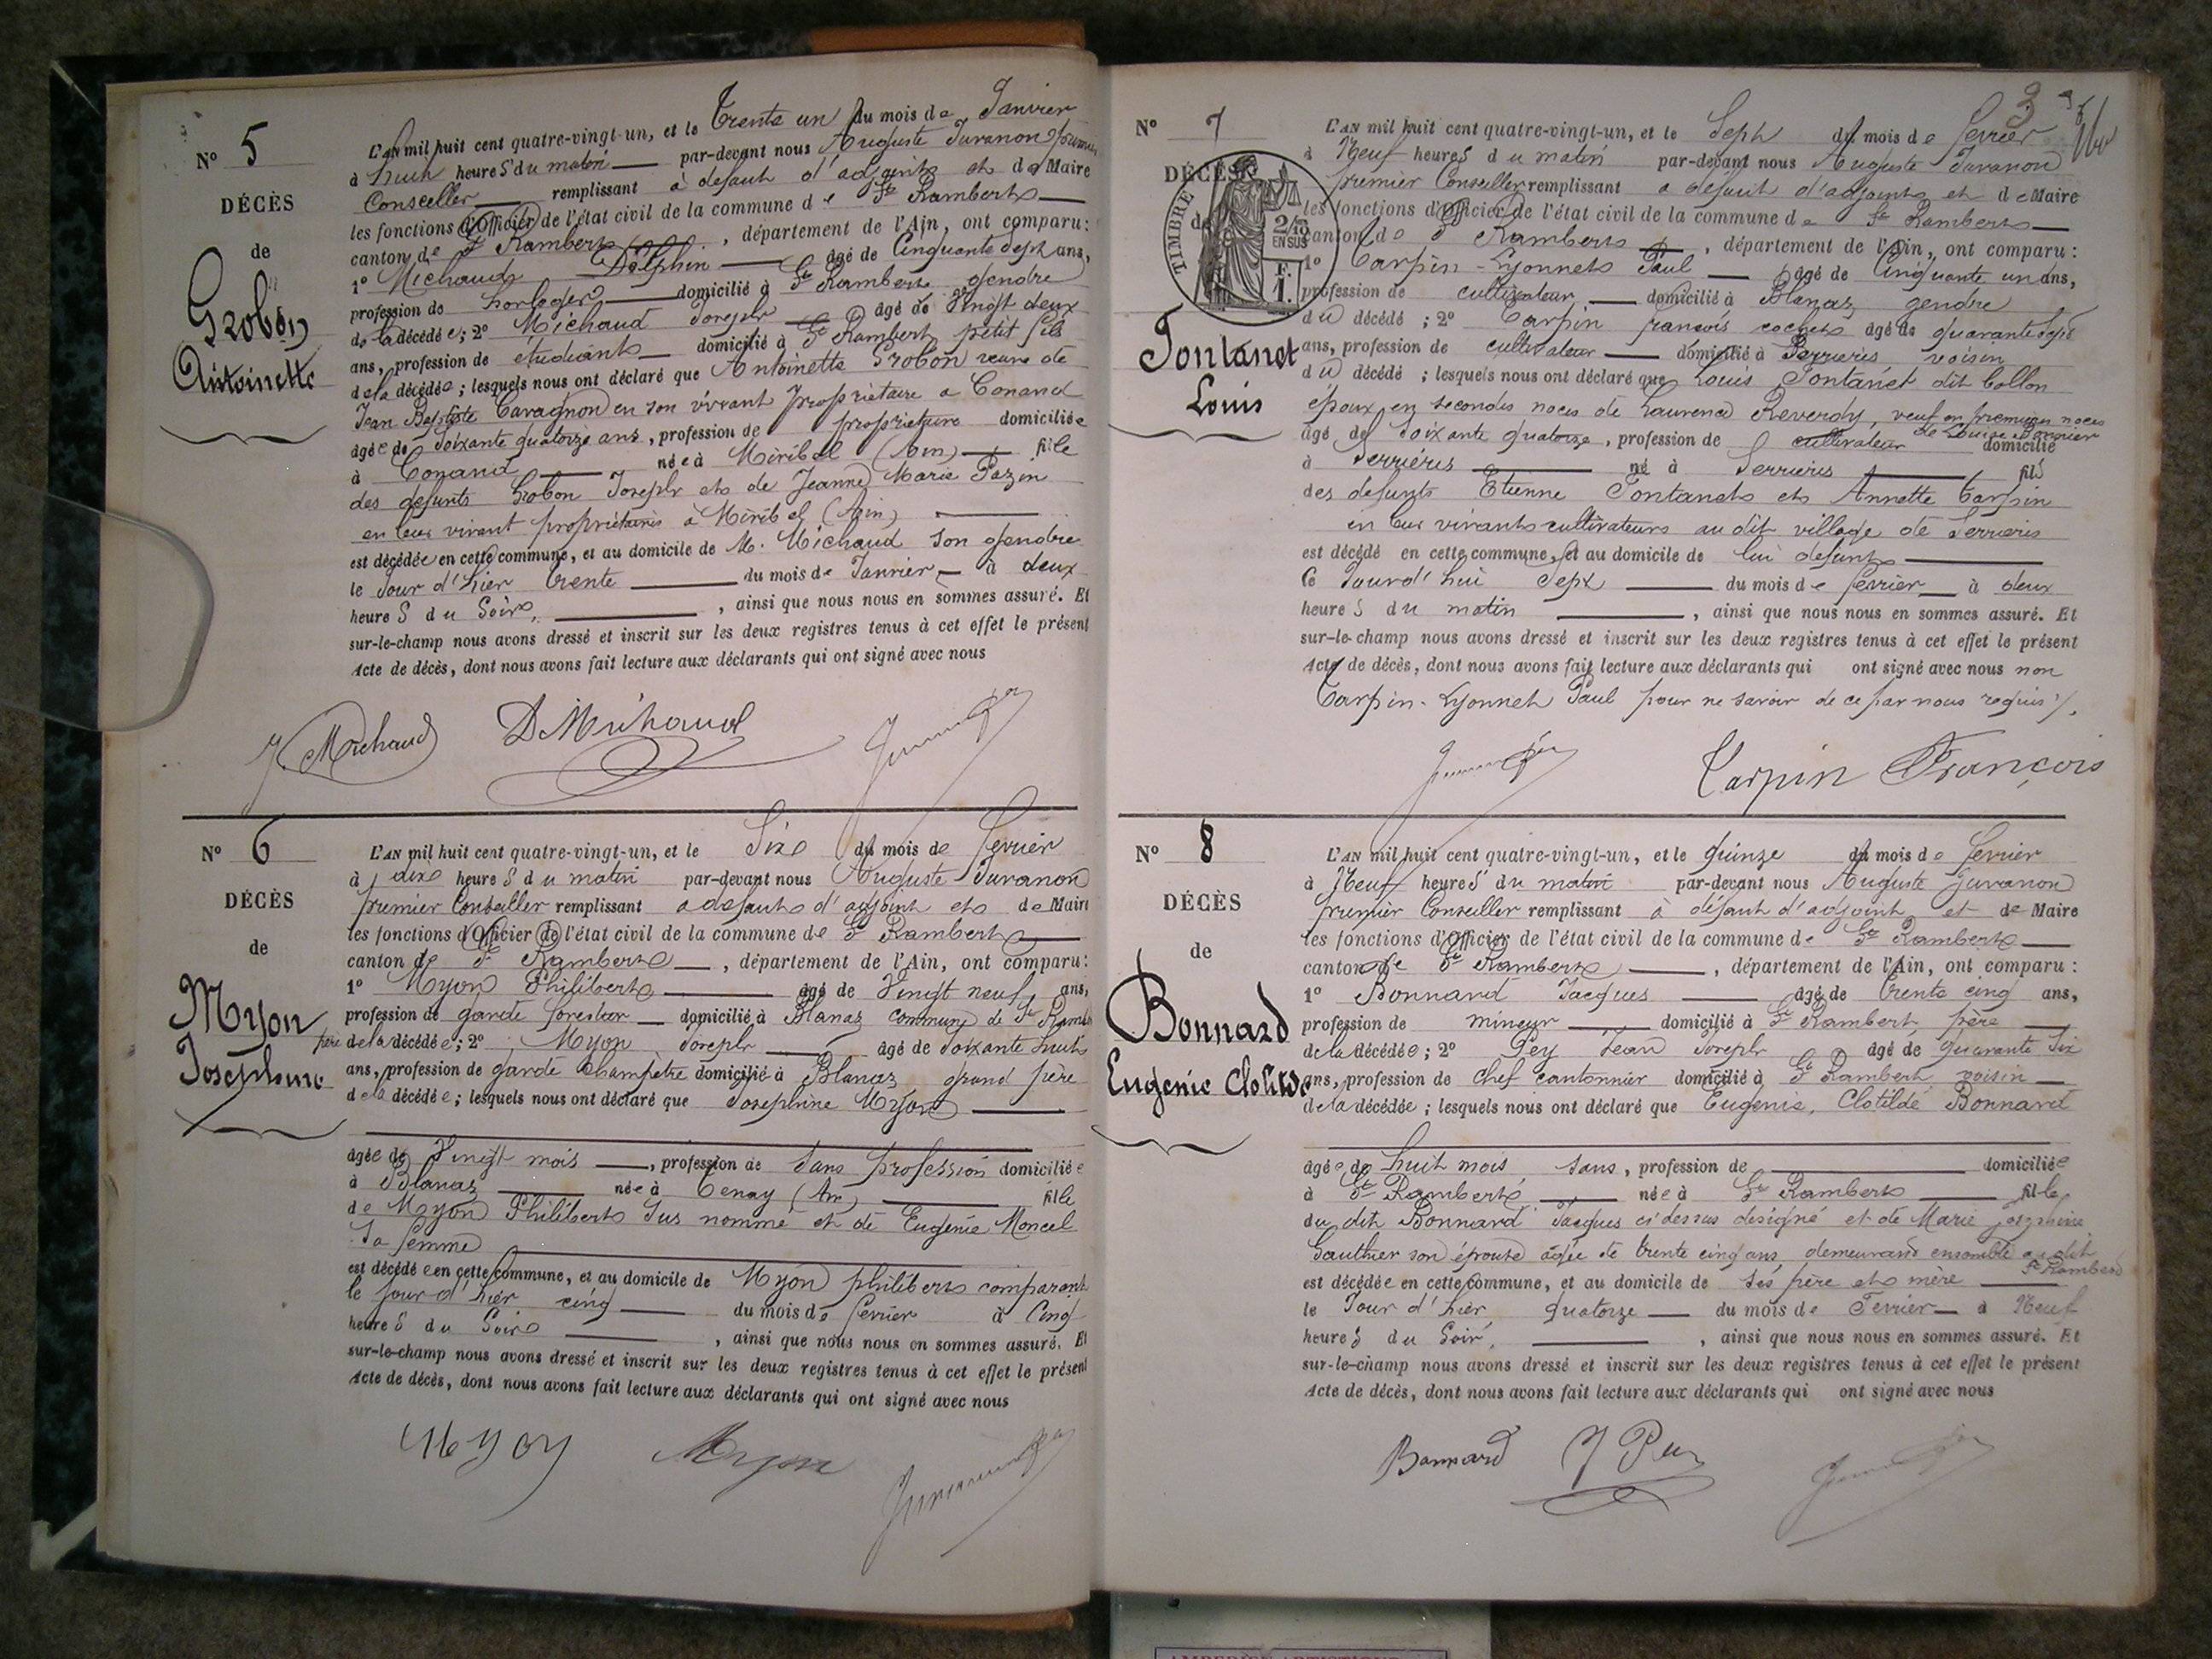 N° 5
DÉCÈS
de
Grobon
Antoinette
L'AN mil huit cent quatre-vingt-un, et le Trente un du mois de Janvier
à huit heures du matin par-devant nous Auguste Juvanon premier
Conseiller remplissant à defaut d'adjoint et de Maire
les fonctions d'Officier de l'état civil de la commune de St Rambert
canton de St Rambert, département de l'Ain, ont comparu:
1° Michaud Delphin âgé de Cinquante Sept ans,
profession de horloger domicilié à St Rambert gendre
de la décédée; 2° Michaud Joseph âgé de Vingt deux
ans, profession de étudiant domicilié à St Rambert petit fils
de la décédée; lesquels nous ont déclaré que Antoinette Grobon veuve de
Jean Baptiste Cavagnon en son vivant propriétaire a Conand
âgée de Soixante quatorze ans, profession de propriétaire domiciliée
à Conand née à Miribel (Ain) fille
des defunts Grobon Joseph et de Jeanne Marie Pazin
en leur vivant propriétaires à Miribel (Ain)
est décédée en cette commune, et au domicile de M. Michaud son gendre
le Jour d'hier trente du mois de Janvier à deux
heures du Soir, ainsi que nous nous en sommes assuré. Et
sur-le-champ nous avons dressé et inscrit sur les deux registres tenus à cet effet le présent
Acte de décès, dont nous avons fait lecture aux déclarants qui ont signé avec nous
J. Michaud D Michaud
N° 6
DÉCÈS
de
Myon
Josephine
L'AN mil huit cent quatre-vingt-un, et le Six du mois de fevrier
à dix heures du matin par-devant nous Auguste Juvanon
premier Conseiller remplissant a defaut d'adjoint et de Maire
les fonctions d'Officier de l'état civil de la commune de St Rambert
canton de St Rambert, département de l'Ain, ont comparu:
1° Myon Philibert âgé de Vingt neuf ans,
profession de garde forestier domicilié à Blanaz commune de St Rambert
père de la décédée; 2° Myon Joseph âgé de Soixante huit
ans, profession de garde Champètre domicilié à Blanaz grand père
de la décédée; lesquels nous ont déclaré que Josephine Myon
âgée de Vingt mois, profession de sans profession domiciliée
à Blanaz née à Tenay (Ain) fille
de Myon Philibert sus nommé et de Eugénie Moncel
sa femme
est décédée en cette commune, et au domicile de Myon philibert comparant
le jour d'hier cinq du mois de fevrier à Cinq
heures du Soir, ainsi que nous nous en sommes assuré. Et
sur-le-champ nous avons dressé et inscrit sur les deux registres tenus à cet effet le présent
Acte de décès, dont nous avons fait lecture aux déclarants qui ont signé avec nous
Myon Myon
3
N° 7
DÉCÈS
de
TIMBRE
2/10
EN SUS
1 F.
Fontanet
Louis
L'AN mil huit cent quatre-vingt-un, et le Sept du mois de fevrier
à Neuf heures du matin par-devant nous Auguste Juvanon
premier Conseiller remplissant a defaut d'adjoint et de Maire
les fonctions d'Officier de l'état civil de la commune de St Rambert
canton de St Rambert, département de l'Ain, ont comparu:
1° Carpin-Lyonnet Paul âgé de Cinquante un ans,
profession de cultivateur domicilié à Blanaz gendre
du décédé; 2° Carpin françois cochet âgé de quarante sept
ans, profession de cultivateur domicilié à Serrieres voisin
du décédé; lesquels nous ont déclaré que Louis Fontanet dit Collon
époux en secondes noces de Laurence Reverdy, veuf en premieres noces
de Louise
âgé de Soixante quatorze, profession de cultivateur domicilié
à Serrières né à Serrieres fils
des defunts Etienne Fontanet et Annette Carpin
en leur vivant cultivateurs au dit village de Serrieres
est décédé en cette commune, et au domicile de lui defunt
le Jourd'hui Sept du mois de fevrier à deux
heures du matin, ainsi que nous nous en sommes assuré. Et
sur-le-champ nous avons dressé et inscrit sur les deux registres tenus à cet effet le présent
Acte de décès, dont nous avons fait lecture aux déclarants qui ont signé avec nous non
Carpin-Lyonnet Paul pour ne savoir de ce par nous requis
Carpin François
N° 8
DÉCÈS
de
Bonnard
Eugenie Clotilde
L'AN mil huit cent quatre-vingt-un, et le quinze du mois de fevrier
à Neuf heures du matin par-devant nous Auguste Juvanon
premier Conseiller remplissant à défaut d'adjoint et de Maire
les fonctions d'Officier de l'état civil de la commune de St Rambert
canton de St Rambert, département de l'Ain, ont comparu:
1° Bonnard Jacques âgé de trente cinq ans,
profession de mineur domicilié à St Rambert père
de la décédée; 2° Pey Jean Joseph âgé de quarante six
ans, profession de chef cantonnier domicilié à St Rambert voisin
de la décédée; lesquels nous ont déclaré que Eugenie, Clotilde Bonnard
âgée de huit mois sans, profession de domiciliée
à St Rambert née à St Rambert fille
du dit Bonnard Jacques ci dessus designé et de Marie josephine
Gauthier son épouse agée de trente cinq ans demeurant ensemble au dit
St Rambert
est décédée en cette commune, et au domicile de ses père et mère
le Jour d'hier quatorze du mois de Fevrier à Neuf
heures du Soir, ainsi que nous nous en sommes assuré. Et
sur-le-champ nous avons dressé et inscrit sur les deux registres tenus à cet effet le présent
Acte de décès, dont nous avons fait lecture aux déclarants qui ont signé avec nous
Bonnard